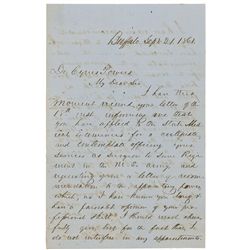 Buffalo Sept 21 1861.
Dr. Cyrus Powers
My Dear Sir
I have this
moment received your letter of the
17th inst, informing me that
you have applied to the State Med
ical examiners for a certificate,
and contemplated offering your
services as Surgeon to some Regi
ment in the U.S. army, and
requesting from me a letter of recom
mendation to the appointing power
which, as I have known you long & have
had a favorable opinion of your pro
fessional skill I should most cheer
fully give, but for the fact that I
do not interfere in any appointments